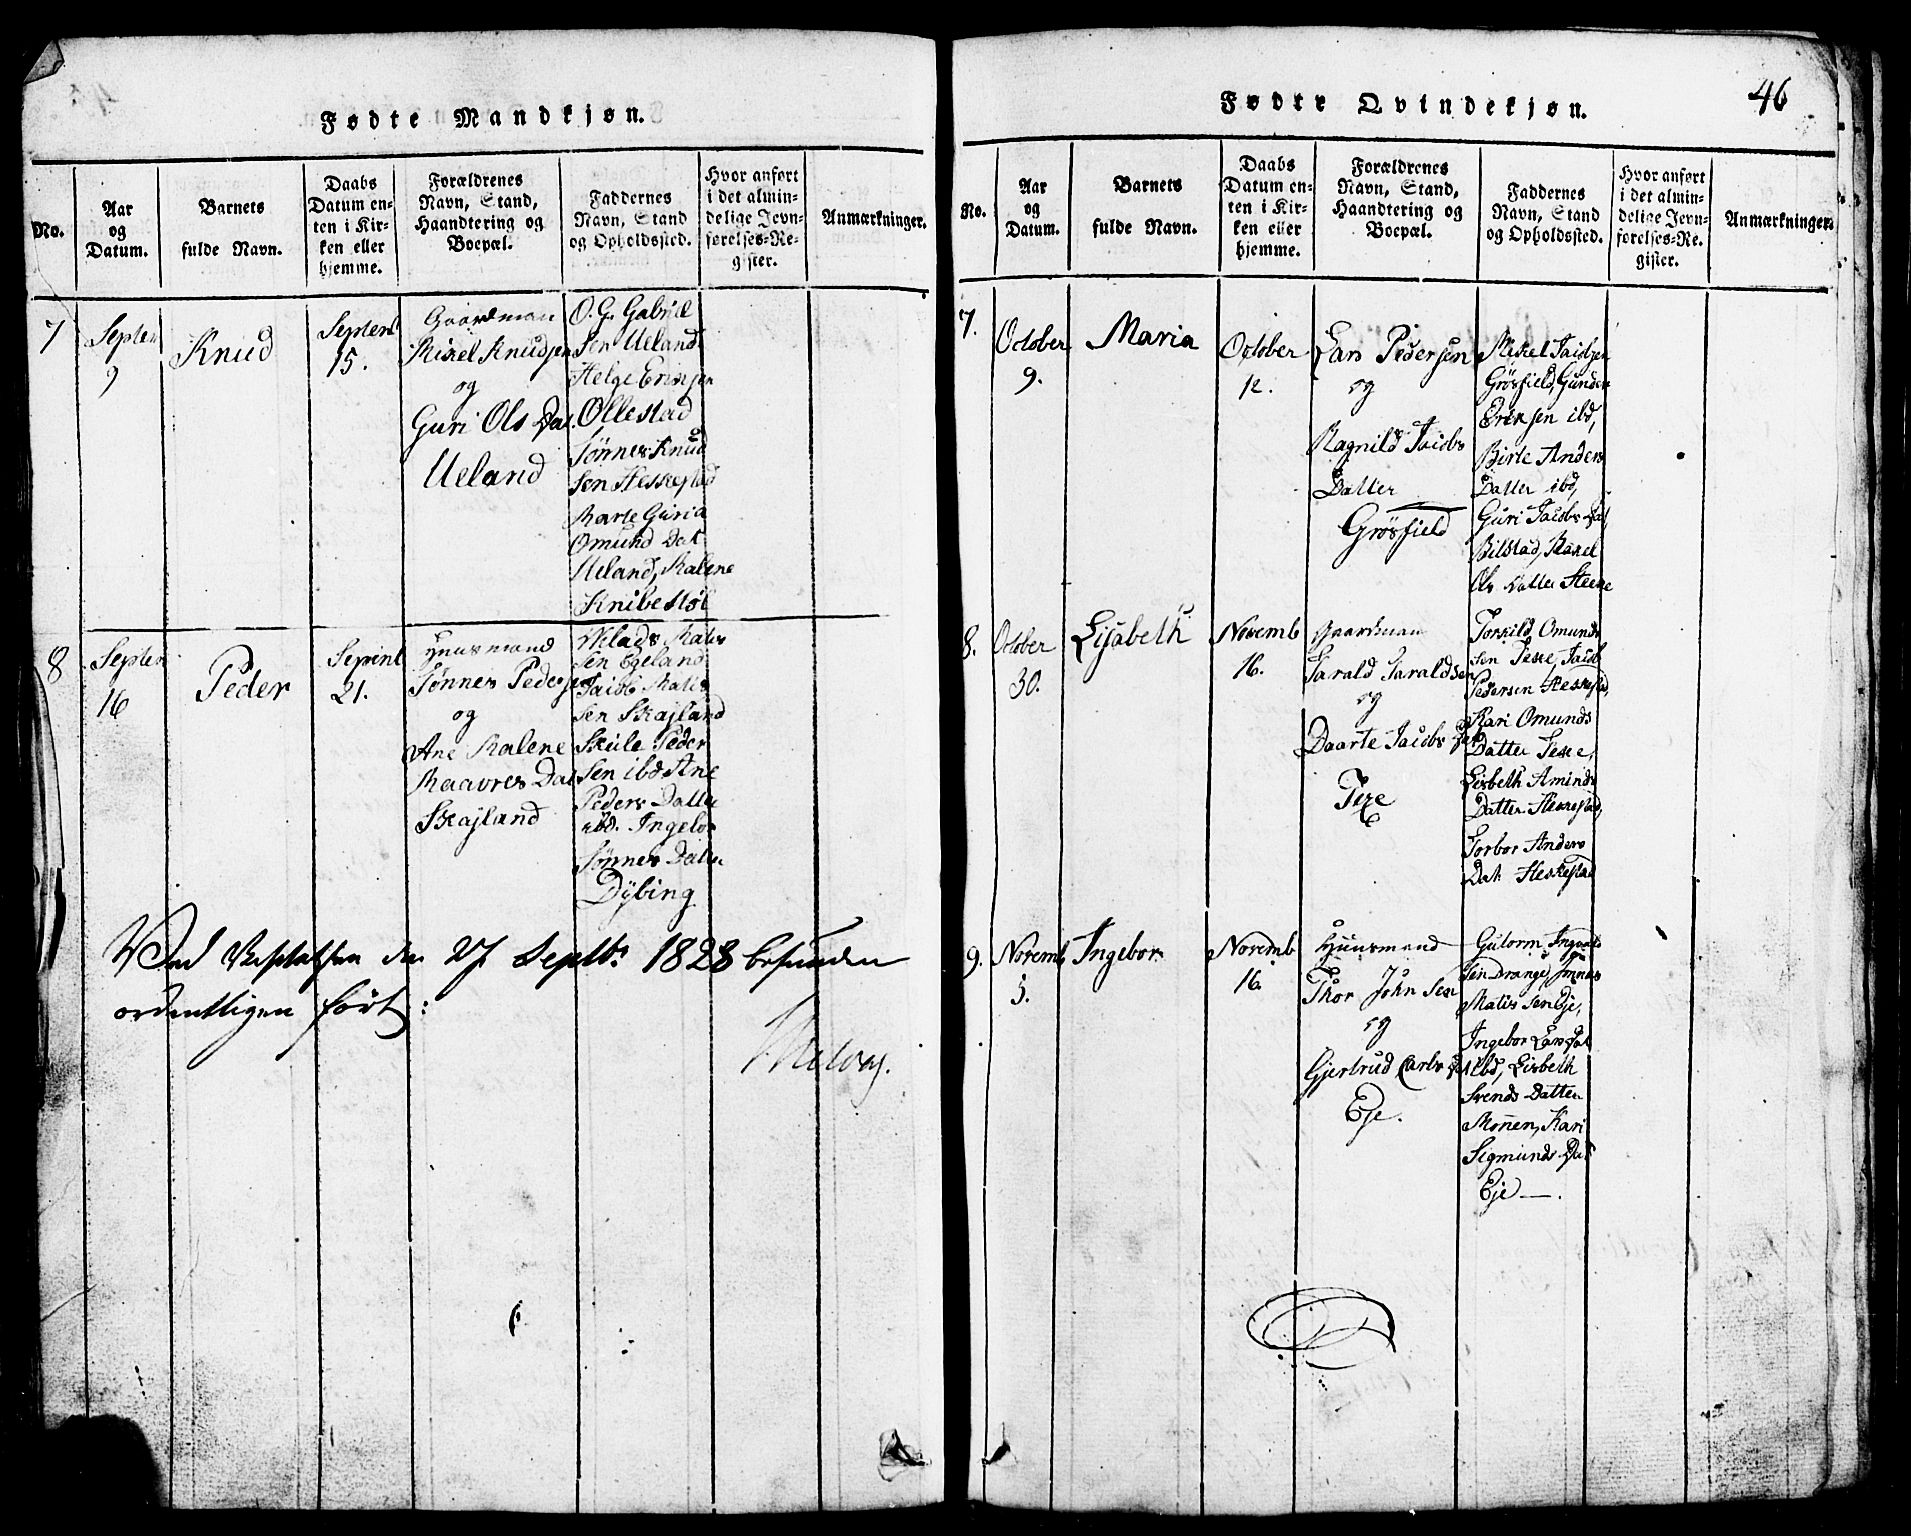 Fødte Mandkjøn.
No.
Aar
og
Datum.
Barnets
fulde Navn.
Daabs
Datum en-
ten i Kir-
ken eller
hjemme.
Forældrenes
Navn, Stand,
Haandtering og
Boepæl.
Faddernes
Navn, Stand
og Opholdssted.
Hvor anført
i det almin-
delige Jevn-
førelses-Re-
gister.
Anmærkninger.
7
Septem
9
Knud
Septemb
15.
Gaardman
Mikel Knudsen
og
Guri Ols Dat.
Ueland
O. G. Gabriel
Sen Ueland
Helge Eriksen
Ollestad
Tønnes Knud
Sen Heskestad
Marte Guria
Omund Dat
Ueland, Malene
Knibestøl
8
Septem
16
Peder
Septemb
21.
Huusmand
Tønnes Pedersen
og
Ane Malene
Maavres Dat
Skajland
Wilads Mates
Sen Egeland
Jacob Mates
Sen Skajland
Skule Peder
Sen ibd Ane
Peders Datter
ibd. Ingebor
Tønnes Datter
Dÿbing
Ved Visitatsen den 27 Septbr 1828 befunden
ordentligen ført:
Fødte Qvindekjøn.
46
No.
Aar
og
Datum.
Barnets
fulde Navn.
Daabs
Datum en-
ten i Kir-
ken eller
hjemme.
Forældrenes
Navn, Stand,
Haandtering og
Boepæl.
Faddernes
Navn, Stand
og Opholdssted.
Hvor anført
i det almin-
delige Jevn-
førelses-Re-
gister.
Anmærkninger.
7.
October
9.
Maria
October
12.
Lars Pedersen
og
Ragnild Jacobs
Datter
Grösfield
Mikel Jacobsen
Grösfield, Gunder
Eriksen ibd,
Birte Anders
Datter ibd,
Guri Jacobs Dat
Bilstad, Rakel
Ols Datter Steene
8.
October
30.
Lisabeth
Novemb
16.
Gaardman
Tarald Taraldsen
og
Daarte Jacobs Dat
Texe
Torkild Omunds
Sen Texe, Jacob
Pedersen Heskestad,
Kari Omunds
Datter Texe,
Lisbeth Aminds
Datter Heskestad,
Torbor Anders
Dat. Heskestad
9.
Novemb
5.
Ingebor
Novemb
16.
Huusmand
Thor John Sen
og
Gjertrud Carls Dat
Eje.
Gutorm Ingvald
Sen Drange,
Mates Sen Eje,
Ingebor Lars Dat
ibd, Lisbeth
Svends Datter
Monen, Kari
Segmunds Dat
Eje —.